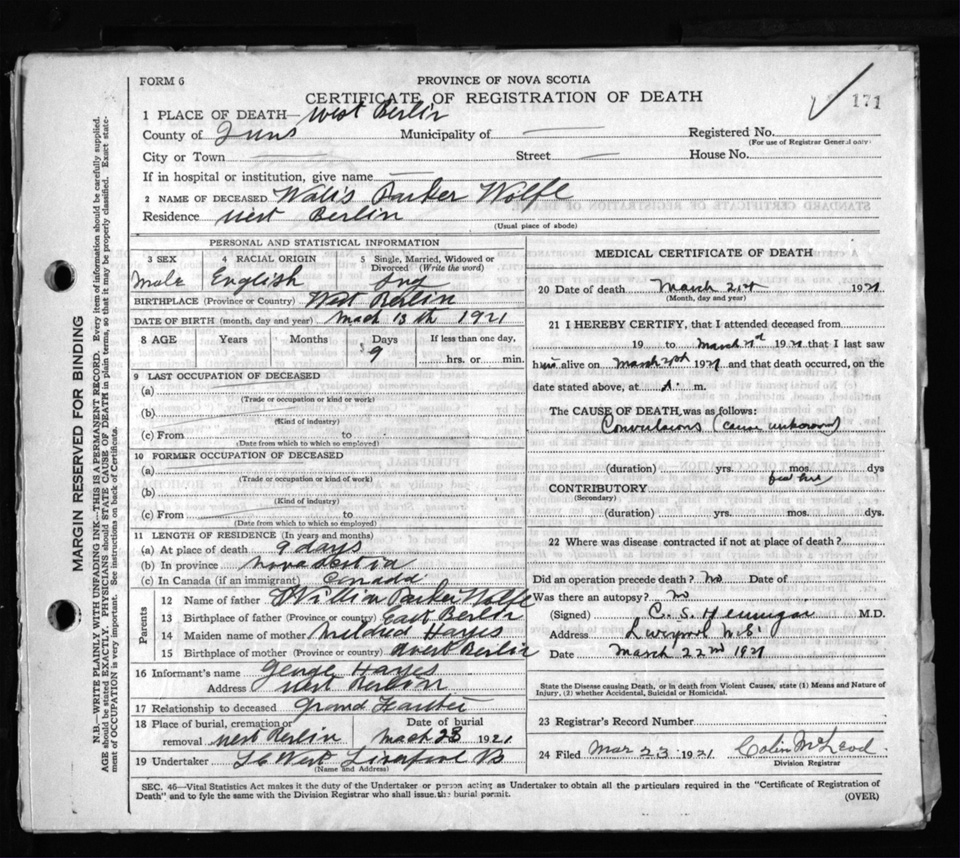 FORM 6
PROVINCE OF NOVA SCOTIA
CERTIFICATE OF REGISTRATION OF DEATH
171
1 PLACE OF DEATH— West Berlin
County of Municipality of Registered No.
(For use of Registrar General only)
City or Town Street House No.
If in hospital or institution, give name
2 NAME OF DECEASED Parker Wolfe
Residence West Berlin
(Usual place of abode)
PERSONAL AND STATISTICAL INFORMATION
3 SEX 4 RACIAL ORIGIN 5 Single, Married, Widowed or Divorced (Write the word)
Male English
BIRTHPLACE (Province or Country) West Berlin
DATE OF BIRTH (month, day and year) Mach 13th 1921
8 AGE Years Months Days If less than one day,
9 hrs. or min.
9 LAST OCCUPATION OF DECEASED
(a)
(Trade or occupation or kind or work)
(b)
(Kind of industry)
(c) From to
(Date from which to which so employed)
10 FORMER OCCUPATION OF DECEASED
(a)
(Trade or occupation or kind of work)
(b)
(Kind of industry)
(c) From to
(Date from which to which so employed)
11 LENGTH OF RESIDENCE (In years and months)
(a) At place of death 9 days
(b) In province Nova Scotia
(c) In Canada (if an immigrant) Canada
Parents
12 Name of father Parker Wolfe
13 Birthplace of father (Province or country) East Berlin
14 Maiden name of mother Mildred Hayes
15 Birthplace of mother (Province or country) West Berlin
16 Informant's name George Hayes
Address West Berlin
17 Relationship to deceased Grand
18 Place of burial, cremation or removal West Berlin Date of burial Mach 23 1921
19 Undertaker West
(Name and Address)
MEDICAL CERTIFICATE OF DEATH
20 Date of death March 21st 1921
(Month, day and year)
21 I HEREBY CERTIFY, that I attended deceased from
19 to March 1921 that I last saw
h alive on March 1921 and that death occurred, on the
date stated above, at m.
The CAUSE OF DEATH was as follows:
Convulsions (cause unknown)
(duration) yrs. mos. dys
CONTRIBUTORY
(Secondary)
(duration) yrs. mos. dys.
22 Where was disease contracted if not at place of death?
Did an operation precede death? No Date of
Was there an autopsy? No
(Signed) C. S. Hennigar M.D.
Address Liverpool N.S.
Date March 22nd 1921
State the Disease causing Death, or in death from Violent Causes, state (1) Means and Nature of
Injury, (2) whether Accidental, Suicidal or Homicidal.
23 Registrar's Record Number
24 Filed Mar 23 1921 Colin McLeod
Division Registrar
SEC. 46—Vital Statistics Act makes it the duty of the Undertaker or person acting as Undertaker to obtain all the particulars required in the "Certificate of Registration of
Death" and to fyle the same with the Division Registrar who shall issue the burial permit.
(OVER)
MARGIN RESERVED FOR BINDING
N.B.—WRITE PLAINLY WITH UNFADING INK—THIS IS A PERMANENT RECORD. Every item of information should be carefully supplied.
AGE should be stated EXACTLY. PHYSICIANS should STATE CAUSE OF DEATH in plain terms, so that it may be properly classified. Exact state-
ment of OCCUPATION is very important. See instructions on back of Certificate.